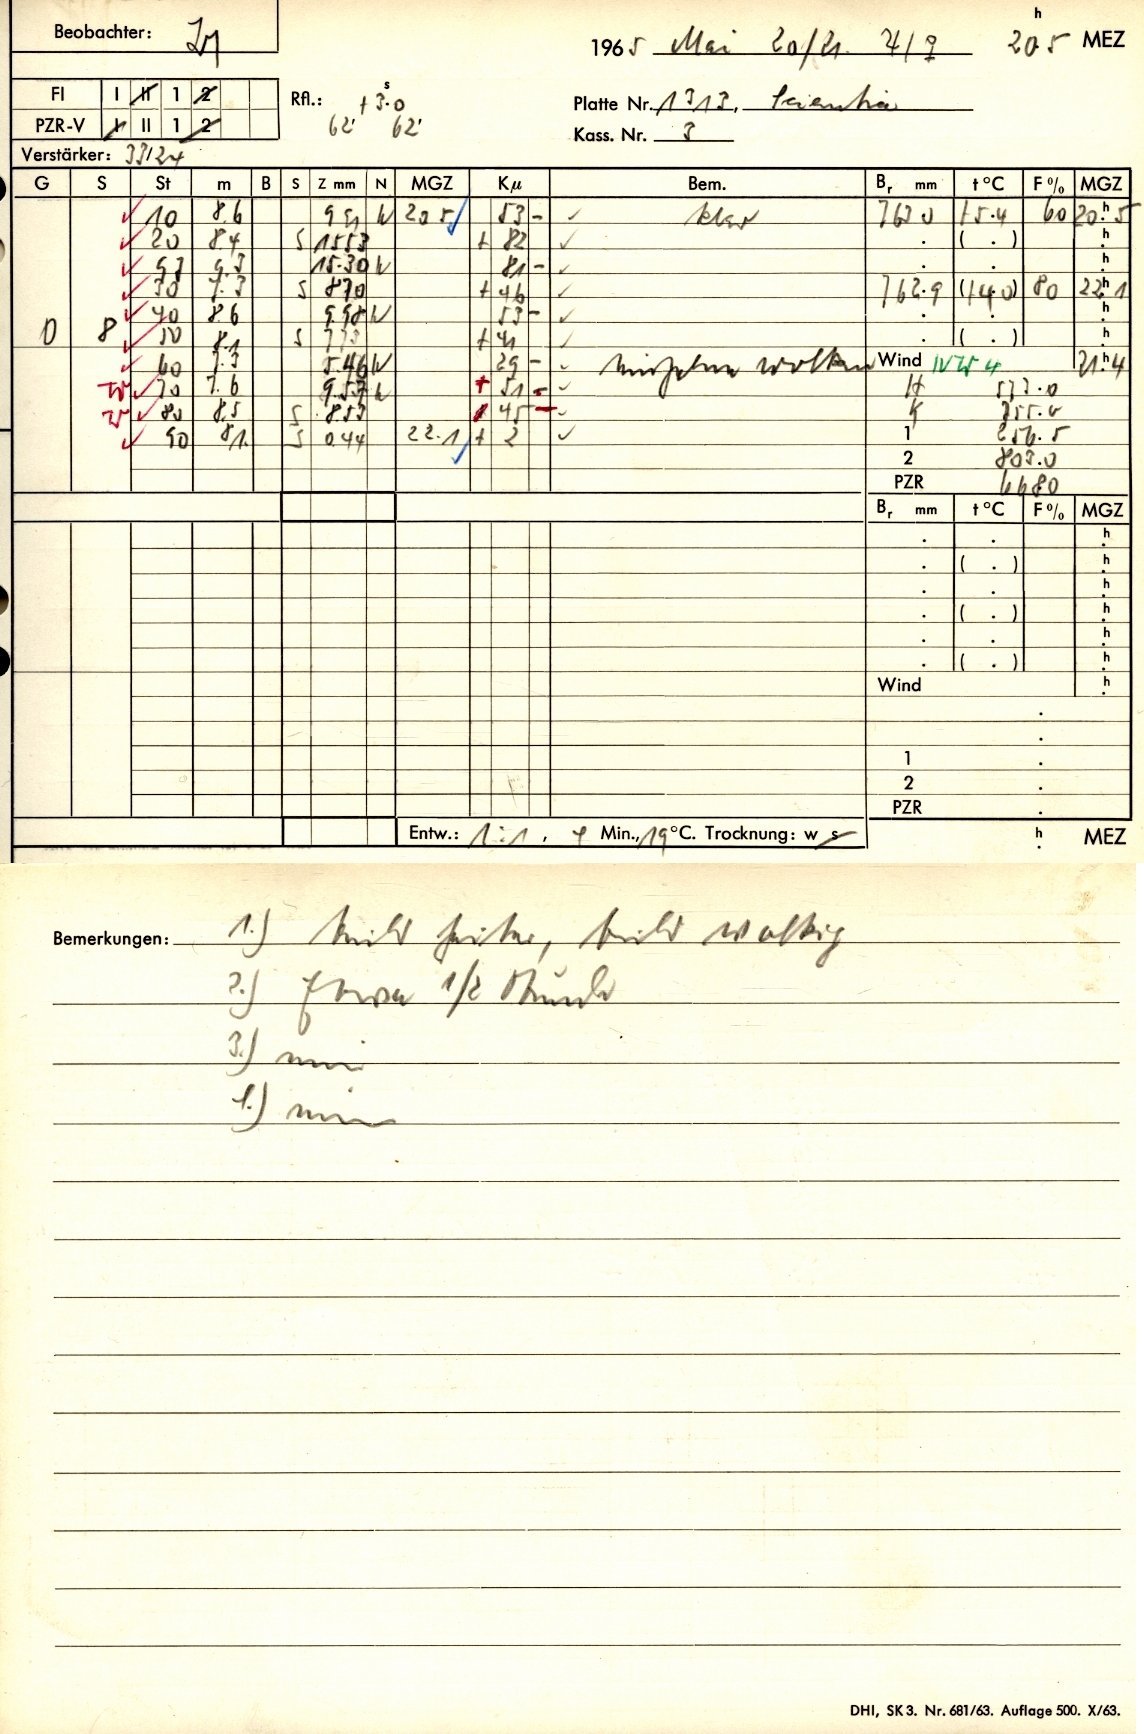 Beobachter:
h
1965 Mai 20/21. 4/9 20 5 MEZ
FI I II 1 2
PZR-V I II 1 2
Rfl.: +3.0 s
62' 62'
Platte Nr. 1313, Scientia
Kass. Nr. 3
Verstärker: 33/24
G S St m B S Z mm N MGZ Kµ Bem. Br mm t °C F % MGZ
10 8.6 N 20 5 53 - klar 763 0 +5.4 60 20.h5
20 8.4 S 1553 + 82 . ( . ) h
93 9.3 15.30 N 81 - . . h
30 7.3 S 870 + 46 762.9 (+4 0) 80 22h1
40 8.6 9.98 N 53 - . . h
0 8 50 8.1 S 773 + 41 . ( . ) h
60 7.3 5.46 N 29 - einzelne Wolken Wind NW 4 21.h4
W 70 7.6 9.57 N + 51 - H 577.0
W 80 8.5 S 8.53 45 - K 755.0
90 8.1 S 0.44 22.1 + 2 1 256.5
2 803.0
PZR 6680
Br mm t °C F % MGZ
. . h
. ( . ) h
. . h
. ( . ) h
. . h
. ( . ) h
Wind h
.
.
1 .
2 .
PZR .
Entw.: 1:1, 4 Min., 19°C. Trocknung: w s h MEZ
Bemerkungen: 1.) teils heiter, teils wolkig
2.) Etwa 1/2 Stunde
3.) nein
4.) nein
DHI, SK 3. Nr. 681/63. Auflage 500. X/63.